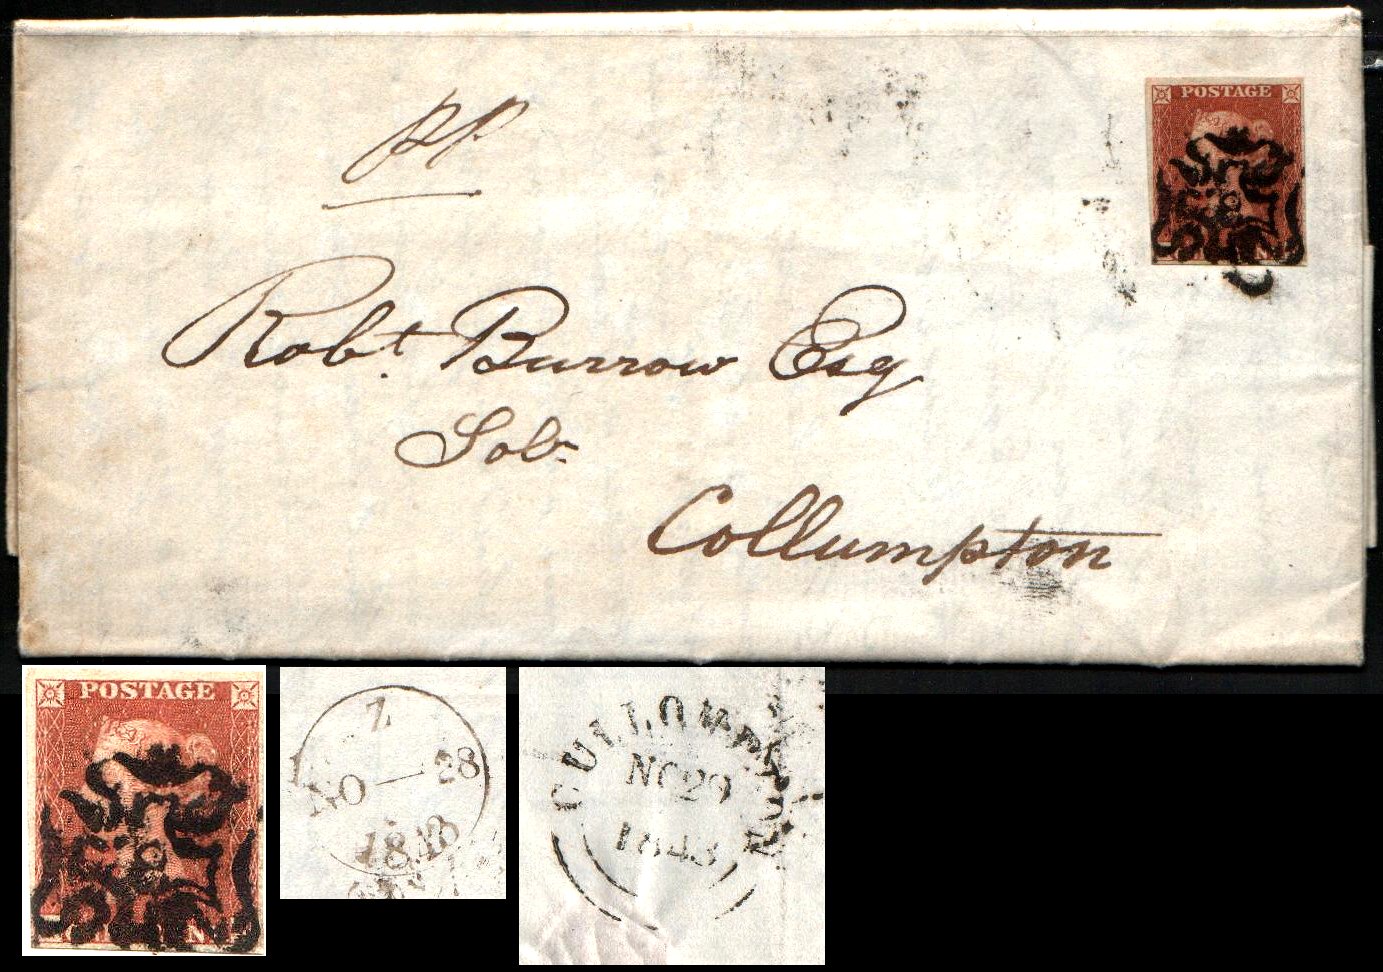 POSTAGE
PP.
Robt. Burrow Esq
Solr
Collumpton
POSTAGE
Z
NO — 28
1843
CULLOMPTON
NO 29
1843